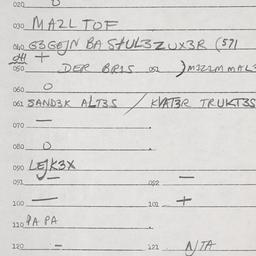 020 O
030 MA2L TOF
040 G3GEJN BA StUL3ZUX3R (571
041 +
050 DER BRIS 051 )MJZZM MAL3
060 O
061 SAND3K ALT3S / KVAT3R TRUKT3S
070 —
080 O
090 LEJK3X
091 — 092 —
100 — 101 +
110 PA PA
120 - 121 N/TA